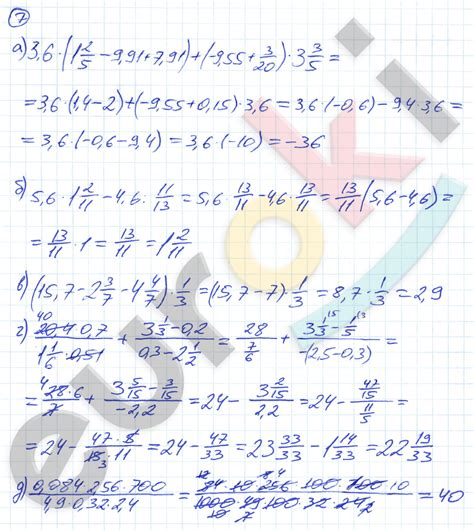 7
а) 3,6 · (1 2/5 − 9,91 + 7,91) + (−9,55 + 3/20) · 3 3/5 =
= 3,6 · (1,4 − 2) + (−9,55 + 0,15) · 3,6 = 3,6 · (−0,6) − 9,4 · 3,6 =
= 3,6 · (−0,6 − 9,4) = 3,6 · (−10) = −36
б) 5,6 · 1 2/11 − 4,6 : 11/13 = 5,6 · 13/11 − 4,6 · 13/11 = 13/11 (5,6 − 4,6) =
= 13/11 · 1 = 13/11 = 1 2/11
в) (15,7 − 2 3/7 − 4 4/7) · 1/3 = (15,7 − 7) · 1/3 = 8,7 · 1/3 = 2,9
г) 40 20,4 · 0,7 / 1 1/6 · 0,51 + 3 1/3 − 0,2 / 0,3 − 2 1/2 = 28 / 7/6 + 3 1/3 − 1/5 / −(2,5 − 0,3) =
= 4 28 · 6 / 7 + 3 5/15 − 3/15 / −2,2 = 24 − 3 2/15 / 2,2 = 24 − 47/15 / 11/5 =
= 24 − 47 · 5 / 15 3 · 11 = 24 − 47/33 = 23 33/33 − 1 14/33 = 22 19/33
д) 0,084 · 256 · 700 / 4,9 · 0,32 · 24 = = 40
eurokи